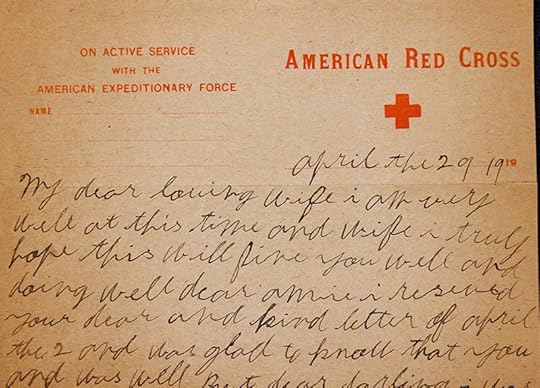 ON ACTIVE SERVICE
WITH THE
AMERICAN EXPEDITIONARY FORCE
NAME
AMERICAN RED CROSS
april the 29 1919
My dear loving wife i am very
well at this time and wife i truly
hope this will fine you well and
doing well dear annie i reseved
your dear and kind letter of april
the 2 and was glad to knoll that you
and was well But dear darling